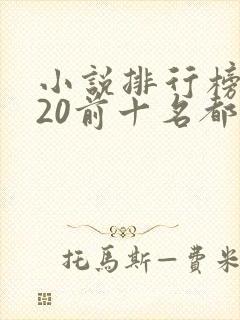 小說排行榜
20前十名都
托馬斯—費米